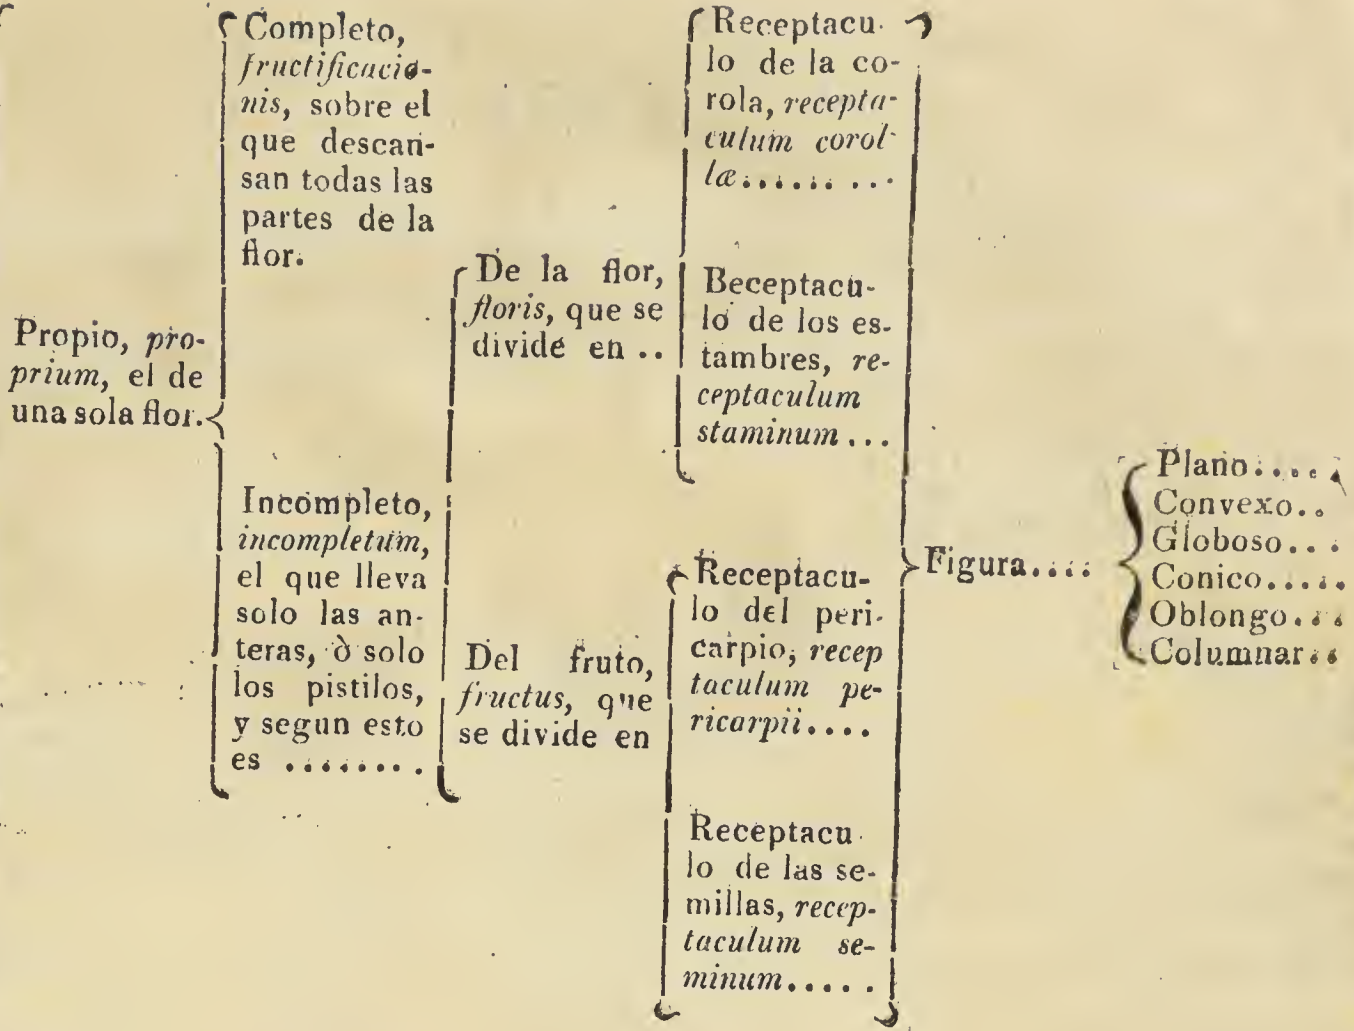 Propio, pro-
prium, el de
una sola flor.
Completo,
fructificacio-
nis, sobre el
que descan-
san todas las
partes de la
flor.
Incompleto,
incompletum,
el que lleva
solo las an-
teras, ò solo
los pistilos,
y segun esto
es ........
De la flor,
floris, que se
divide en ..
Del fruto,
fructus, que
se divide en
Receptacu-
lo de la co-
rola, recepta-
culum corol-
læ.........
Beceptacu-
lo de los es-
tambres, re-
ceptaculum
staminum ...
Receptacu-
lo del peri-
carpio, recep
taculum pe-
ricarpii....
Receptacu-
lo de las se-
millas, recep-
taculum se-
minum.....
Figura....
Plano....
Convexo..
Globoso...
Conico.....
Oblongo...
Columnar..